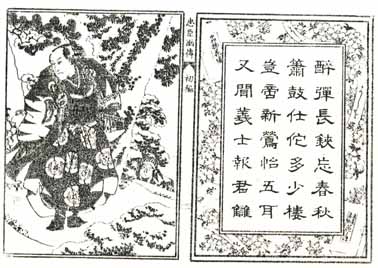 醉彈長鋏忘春秋
簫鼓任佗多少樓
豈啻新鶯怡吾耳
又聞義士報君讎
忠臣傳
初編